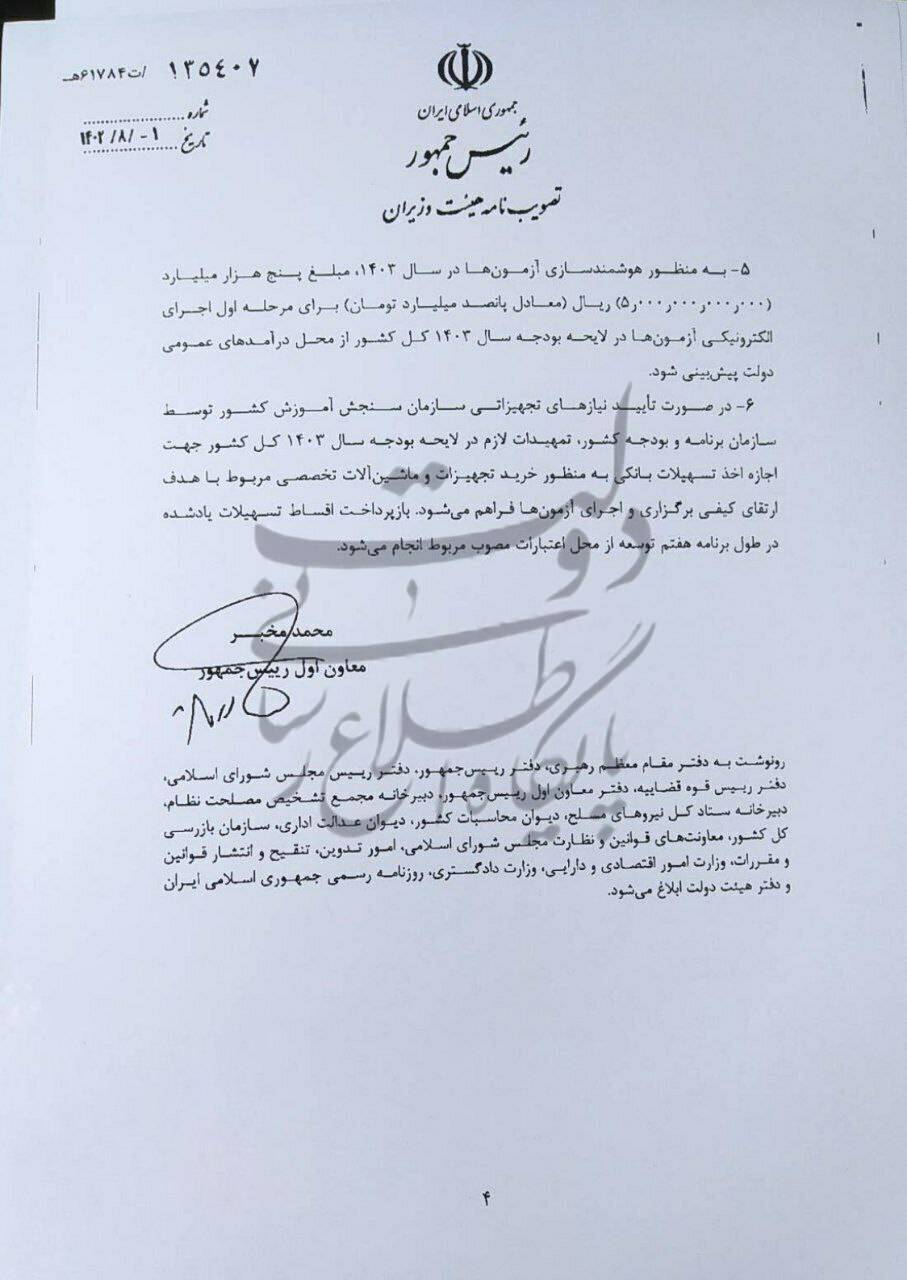 ۱۳۵۴۰۷ /ت۶۱۷۸۴هـ
شماره
تاریخ ۱۴۰۲/۸/-۱
جمهوری اسلامی ایران
رئیس جمهور
تصویب نامه هیئت وزیران
۵- به منظور هوشمندسازی آزمون‌ها در سال ۱۴۰۳، مبلغ پنج هزار میلیارد
(۵٫۰۰۰٫۰۰۰٫۰۰۰٫۰۰۰) ریال (معادل پانصد میلیارد تومان) برای مرحله اول اجرای
الکترونیکی آزمون‌ها در لایحه بودجه سال ۱۴۰۳ کل کشور از محل درآمدهای عمومی
دولت پیش‌بینی شود.
۶- در صورت تأیید نیازهای تجهیزاتی سازمان سنجش آموزش کشور توسط
سازمان برنامه و بودجه کشور، تمهیدات لازم در لایحه بودجه سال ۱۴۰۳ کل کشور جهت
اجازه اخذ تسهیلات بانکی به منظور خرید تجهیزات و ماشین‌آلات تخصصی مربوط با هدف
ارتقای کیفی برگزاری و اجرای آزمون‌ها فراهم می‌شود. بازپرداخت اقساط تسهیلات یادشده
در طول برنامه هفتم توسعه از محل اعتبارات مصوب مربوط انجام می‌شود.
محمد مخبر
معاون اول رییس‌جمهور
پایگاه اطلاع رسانی دولت
رونوشت به دفتر مقام معظم رهبری، دفتر رییس‌جمهور، دفتر رییس مجلس شورای اسلامی،
دفتر رییس قوه قضاییه، دفتر معاون اول رییس‌جمهور، دبیرخانه مجمع تشخیص مصلحت نظام،
دبیرخانه ستاد کل نیروهای مسلح، دیوان محاسبات کشور، دیوان عدالت اداری، سازمان بازرسی
کل کشور، معاونت‌های قوانین و نظارت مجلس شورای اسلامی، امور تدوین، تنقیح و انتشار قوانین
و مقررات، وزارت امور اقتصادی و دارایی، وزارت دادگستری، روزنامه رسمی جمهوری اسلامی ایران
و دفتر هیئت دولت ابلاغ می‌شود.
۴